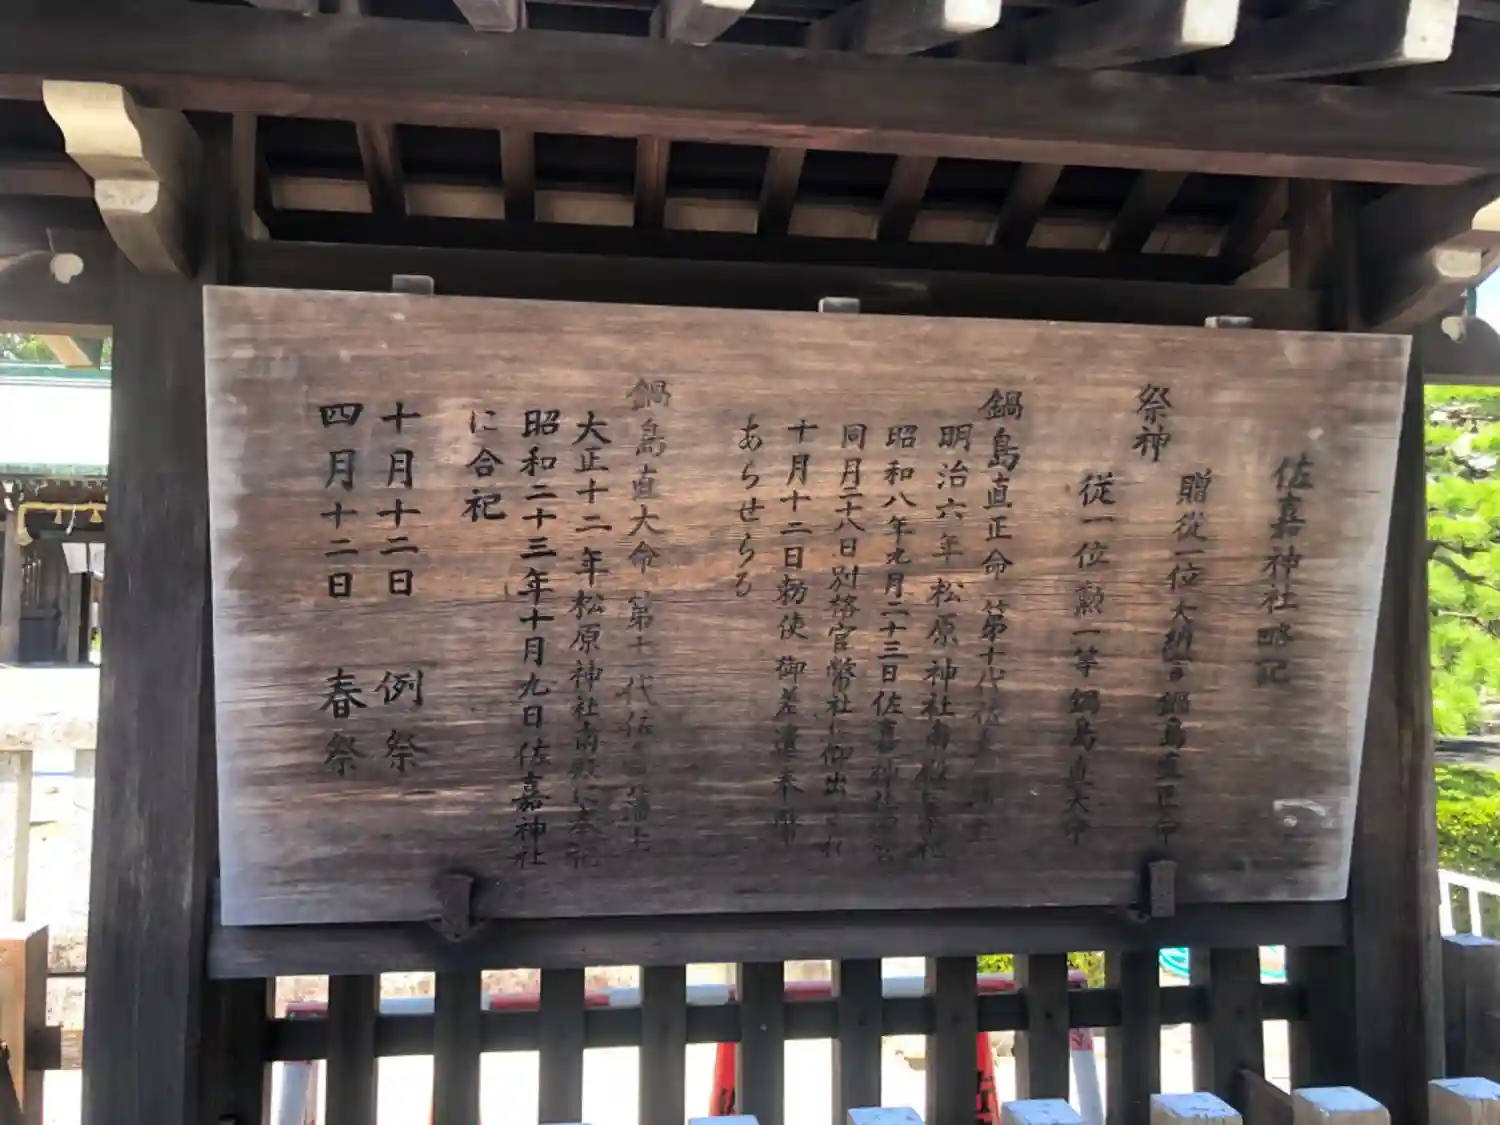 佐嘉神社略記
祭神
贈従一位大納言鍋島直正命
従一位勲一等鍋島直大命
鍋島直正命 第十代佐嘉藩主
明治六年松原神社南殿奉祀
昭和八年九月二十三日佐嘉神社
同月二十八日別格官幣社に御出され
十月十二日勅使御差遣奉幣
あらせらる
鍋島直大命 第十一代佐嘉藩主
大正十二年松原神社南殿に奉祀
昭和二十三年十月九日佐嘉神社
に合祀
十月十二日 例祭
四月十二日 春祭